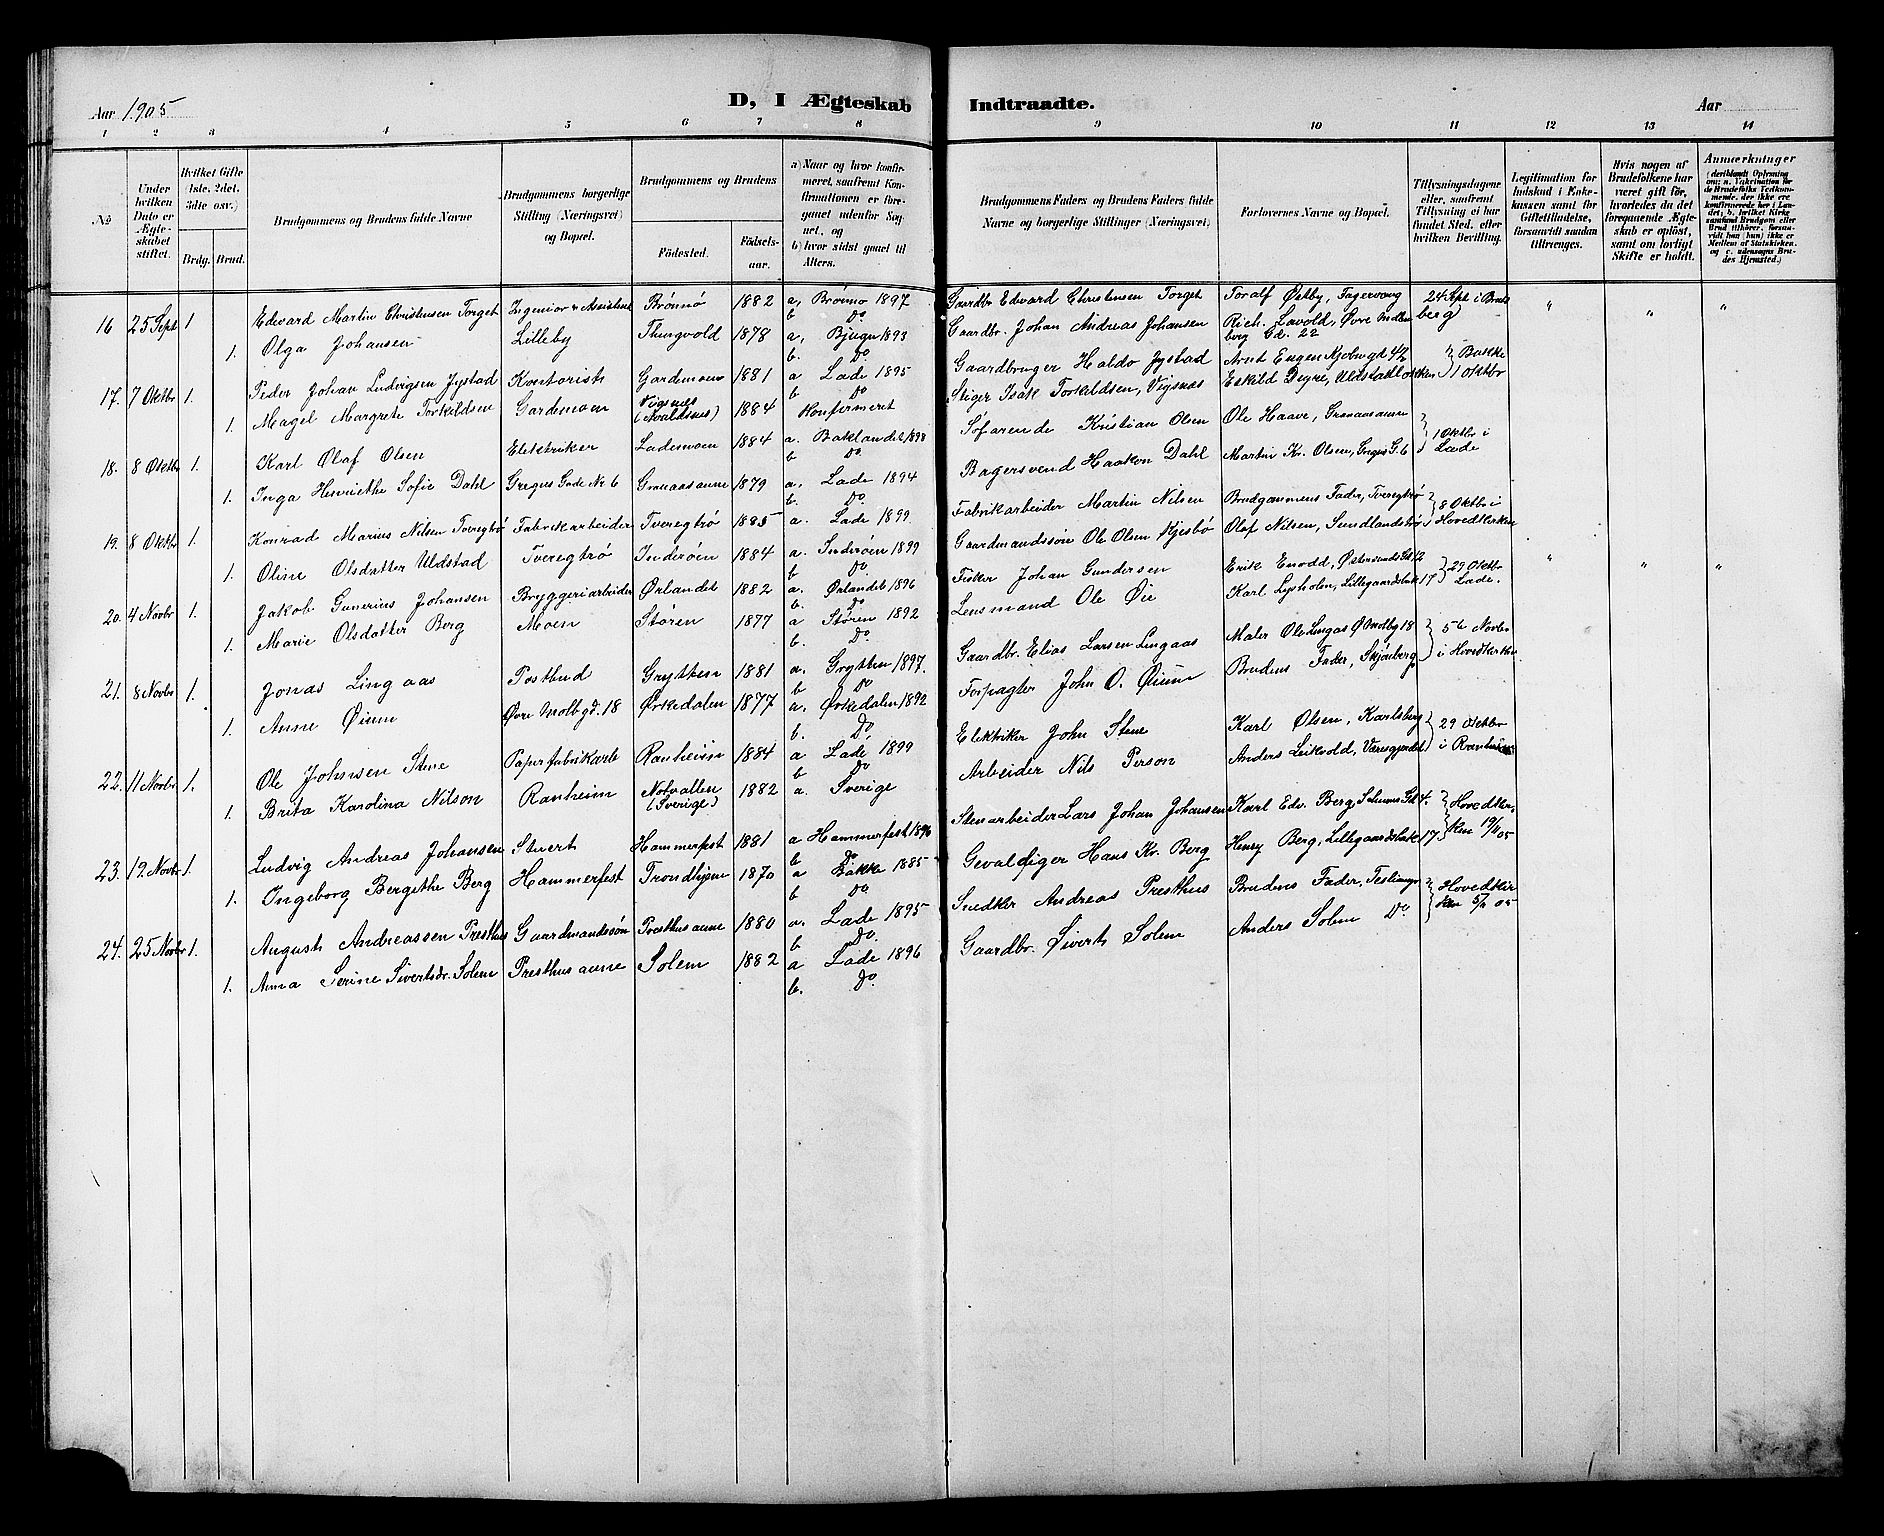 Aar 1905 D, I Ægteskab Indtraadte. Aar
1 2 3 4 5 6 7 8 9 10 11 12 13 14
No
Under hvilken Dato er Ægteskabet stiftet.
Hvilket Gifte (1ste, 2det, 3die osv.)
Brdg. Brud.
Brudgommens og Brudens fulde Navne
Brudgommens borgerlige Stilling (Næringsvei) og Bopæl.
Brudgommens og Brudens
Födested. Födselsaar.
a) Naar og hvor konfirmeret, saafremt Konfirmationen er foregaaet udenfor Sognet, og
b) hvor sidst gaaet til Alters.
Brudgommens Faders og Brudens Faders fulde Navne og borgerlige Stillinger (Næringsvei)
Forlovernes Navne og Bopæl.
Tillysningsdagene eller, saafremt Tillysning ei har fundet Sted, efter hvilken Bevilling.
Legitimation for Indskud i Enkekassen samt for Giftetilladelse, forsaavidt saadan tiltrænges.
Hvis nogen af Brudefolkene har været gift för, hvorledes da det foregaaende Ægteskab er oplöst, samt om lovligt Skifte er holdt.
Anmærkninger
16 25 Sept 1 Edvard Martin Christensen Torget Ingeniör & Assistent Brönnö 1882 a, Brönnö 1897 b Do Gaardbr Edvard Christensen Torget Toralf Østby, Fagervang 24 Sept i Bakke
1. Olga Johansen Lilleby 1878 a, Bjugn 1893 b. Do. Gaardbr. Johan Andreas Johansen Rich. Lavold, Øvre Møllenberg Gd. 22
17. 7 Oktbr 1. Peder Johan Ludvigsen Jystad Kontorist Gardemoen 1881 a Lade 1895 b Do Gaardbruger Haldo Jystad Arnt Engen Kjobmgd 42 Bakke 1 Oktbr
1. Magel Margrete Torkildsen Gardemoen Vigsnes (Avaldsnes) 1884 Konfirmeret Stiger Isak Torkildsen, Vigsnes Eskild Degre,
18. 8 Oktbr 1. Karl Olaf Olsen Elektriker Lademoen 1884 a. Baklandet 1898 b Do. Söfarende Kristian Olsen Ole Haave, Granaasaunn 1 Oktbr i Lade
1. Inga Henriethe Sofie Dahl Gregus Gade No 6 Granaasaune 1879 a. Lade 1894 b. Do Bagersvend Haakon Dahl Martin Kr. Olsen, G. 6
19. 8 Oktbr 1. Konrad Marius Nilsen Tveregtrö Fabrikarbeider Tveregtrö 1885 a. Lade 1899 Fabrikarbeider Martin Nilsen Brudgommens Fader, Tveregtrö 8 Oktbr i Hovedkirken
1. Oline Olsdatter Uldstad Tveregtrö Inderöen 1884 a. Inderöen 1899 b Do Gaardmandssön Ole Olsen Hjesbö Olaf Nilsen, Sundlandströ
20. 4 Novbr 1. Jakob Gunerius Johansen Bryggeriarbeider Ørlandet 1882 a. Ørlandet 1896 b. Do Fisker Johan Gundersen Erik Enodd, Østersunds Gd 12 29 Oktbr Lade.
1. Marie Olsdatter Berg Moen Stören 1877 a Stören 1892 b. Do. Lensmand Ole Øie Karl Lysholm, Lillegaardsbak 17
21. 8 Novbr 1. Jonas Lingaas Postbud Grytten 1881 a. Grytten 1897. b Do Gaardbr. Elias Larsen Lingaas Maler Ole Lingas Ø Molbg 18 5te Novbr i Hovedkirken
1. Anne Øium Øvre Molbgd. 18 Ørkedalen 1877 a. Ørkedalen 1892 b. Do. Forpagter John O. Øium Brudens Fader, Skjönberg
22. 11 Novbr. 1. Ole Johnsen Stene Papirfabrikarb Ranheim 1884 a Lade 1899 b Do Elektriker John Stene Karl Olsen, Karlsberg 29 Oktbr i Ranheim
1. Brita Karolina Nilson Ranheim (Sverige) 1882 a. Sverige Arbeider Nils Person Anders Leikvold,
23. 12 Novbr 1. Ludvig Andreas Johansen Stuert Hammerfest 1881 a Hammerfest 1896 b Do Stenarbeider Lars Johan Johansen Karl Edv. Berg, Gd 4. Hovedkirken
1. Ingeborg Bergithe Berg Hammerfest Trondhjem 1870 a Bakke 1885 b Do Gevaldiger Hans Kr. Berg Henry Berg, Lillegaardsbak 17
24. 25 Novbr 1. August Andreassen Presthus Gaardmandssön Presthusaune 1880 a. Lade 1895 b Do. Snedker Andreas Presthus Brudens Fader, Hovedkirken
1. Anna Serine Sivertsdr. Solem Presthusaune Solem 1882 a Lade 1896 b. Do. Gaardbr. Sivert Solem Anders Solem Do